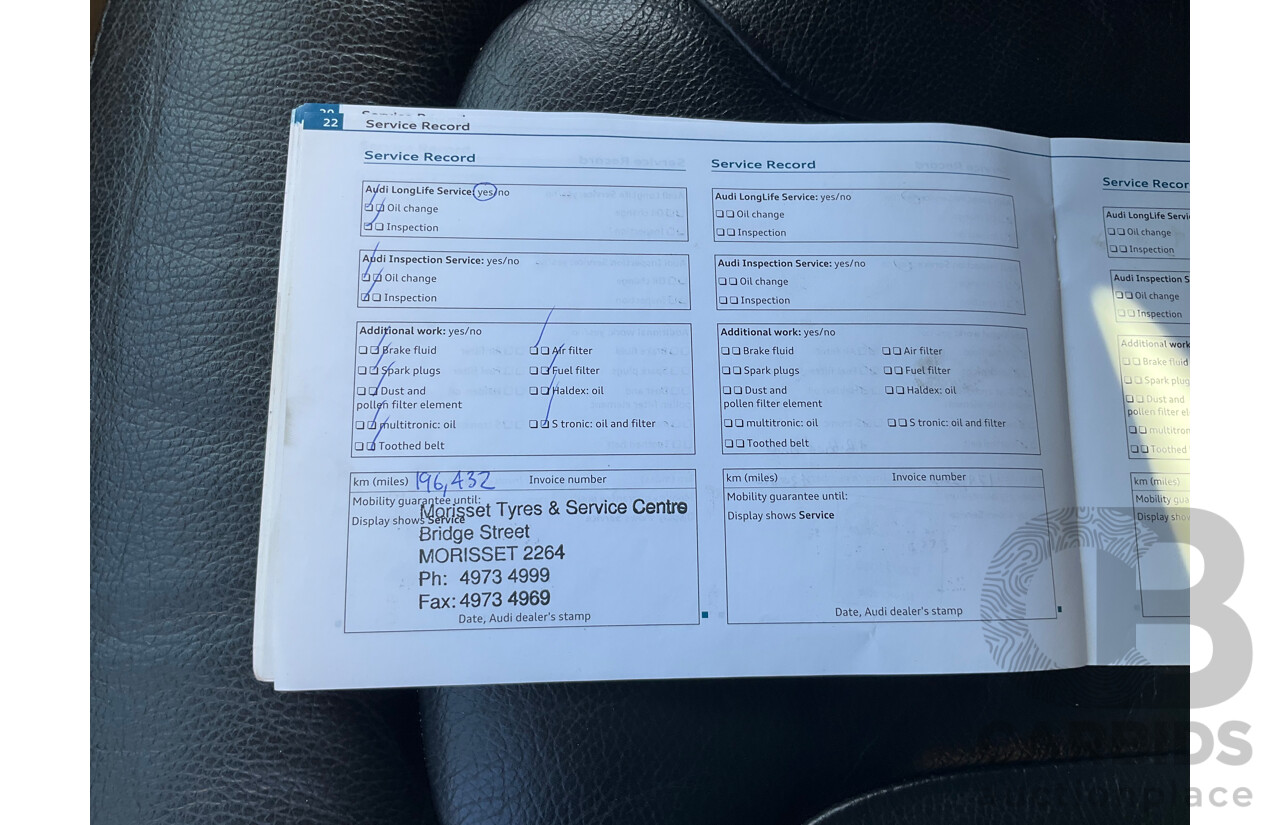 20
22 Service Record
Service Record
Audi LongLife Service: yes/no
Oil change
Inspection
Audi Inspection Service: yes/no
Oil change
Inspection
Additional work: yes/no
Brake fluid
Air filter
Spark plugs
Fuel filter
Dust and
pollen filter element
Haldex: oil
multitronic: oil
S tronic: oil and filter
Toothed belt
km (miles) 196,432 Invoice number
Mobility guarantee until:
Display shows Service
Morisset Tyres & Service Centre
Bridge Street
MORISSET 2264
Ph: 4973 4999
Fax: 4973 4969
Date, Audi dealer's stamp
Service Record
Audi LongLife Service: yes/no
Oil change
Inspection
Audi Inspection Service: yes/no
Oil change
Inspection
Additional work: yes/no
Brake fluid
Air filter
Spark plugs
Fuel filter
Dust and
pollen filter element
Haldex: oil
multitronic: oil
S tronic: oil and filter
Toothed belt
km (miles) Invoice number
Mobility guarantee until:
Display shows Service
Date, Audi dealer's stamp
Service Recor
Audi LongLife Servi
Oil change
Inspection
Audi Inspection S
Oil change
Inspection
Additional work
Brake fluid
Spark plug
Dust and
pollen filter el
multitron
Toothed
km (miles)
Mobility gua
Display show
CB
CARBIDS